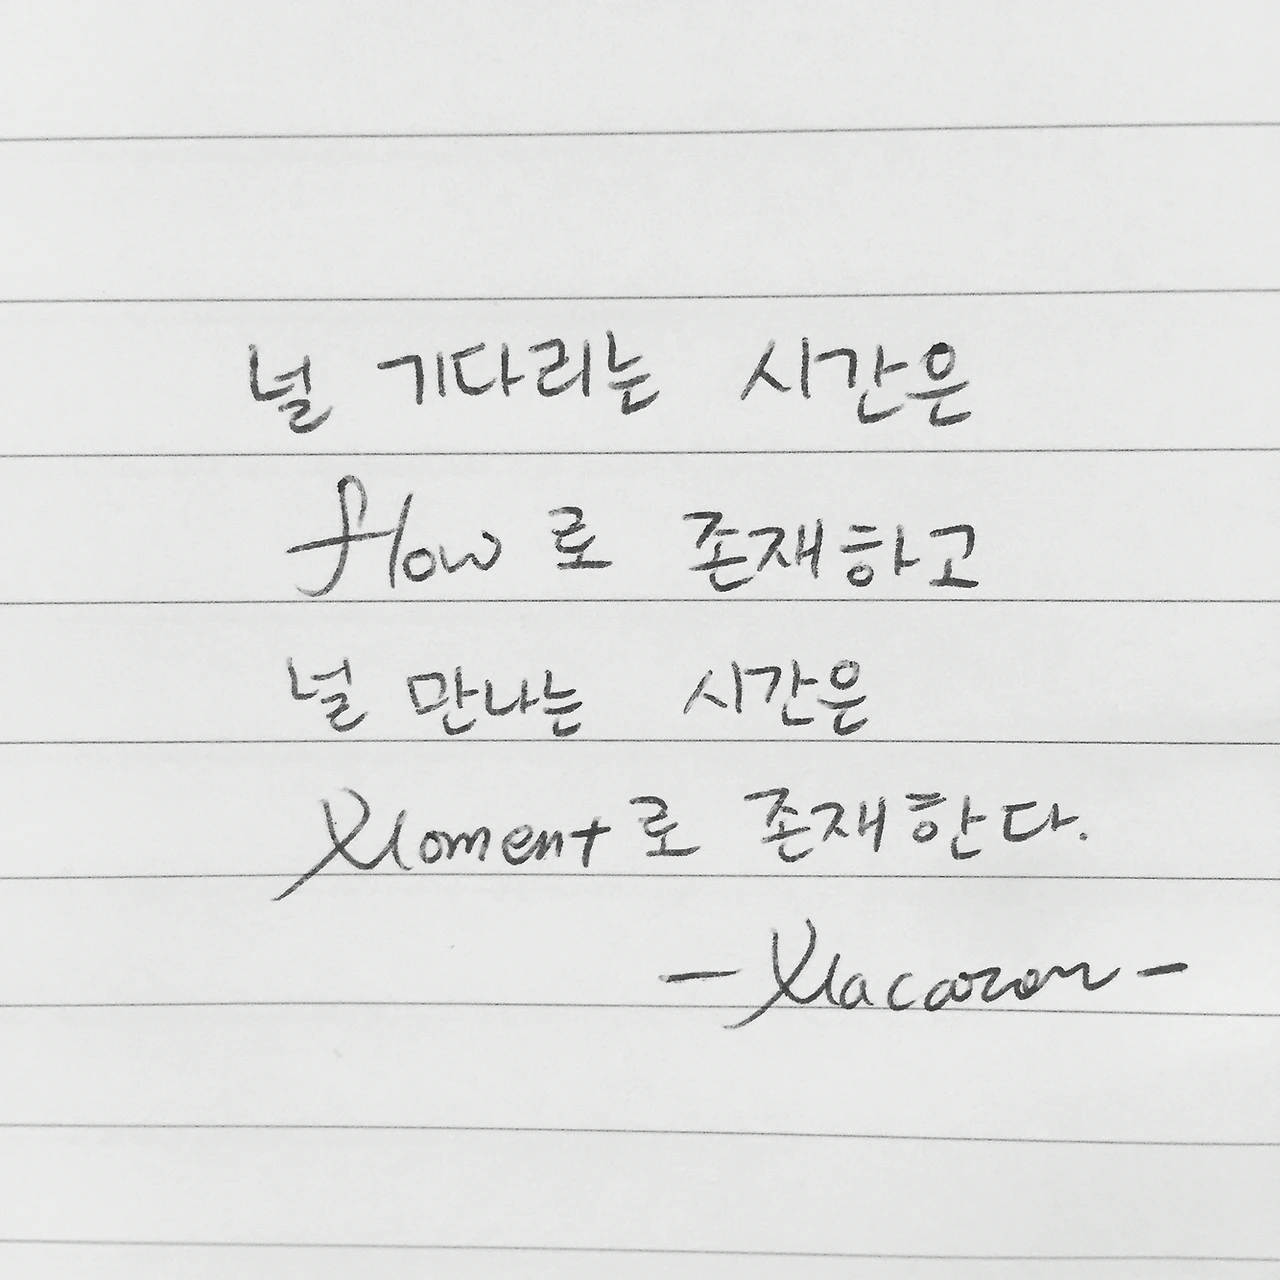 널 기다리는 시간은
flow로 존재하고
널 만나는 시간은
Moment로 존재한다.
- Macaron -